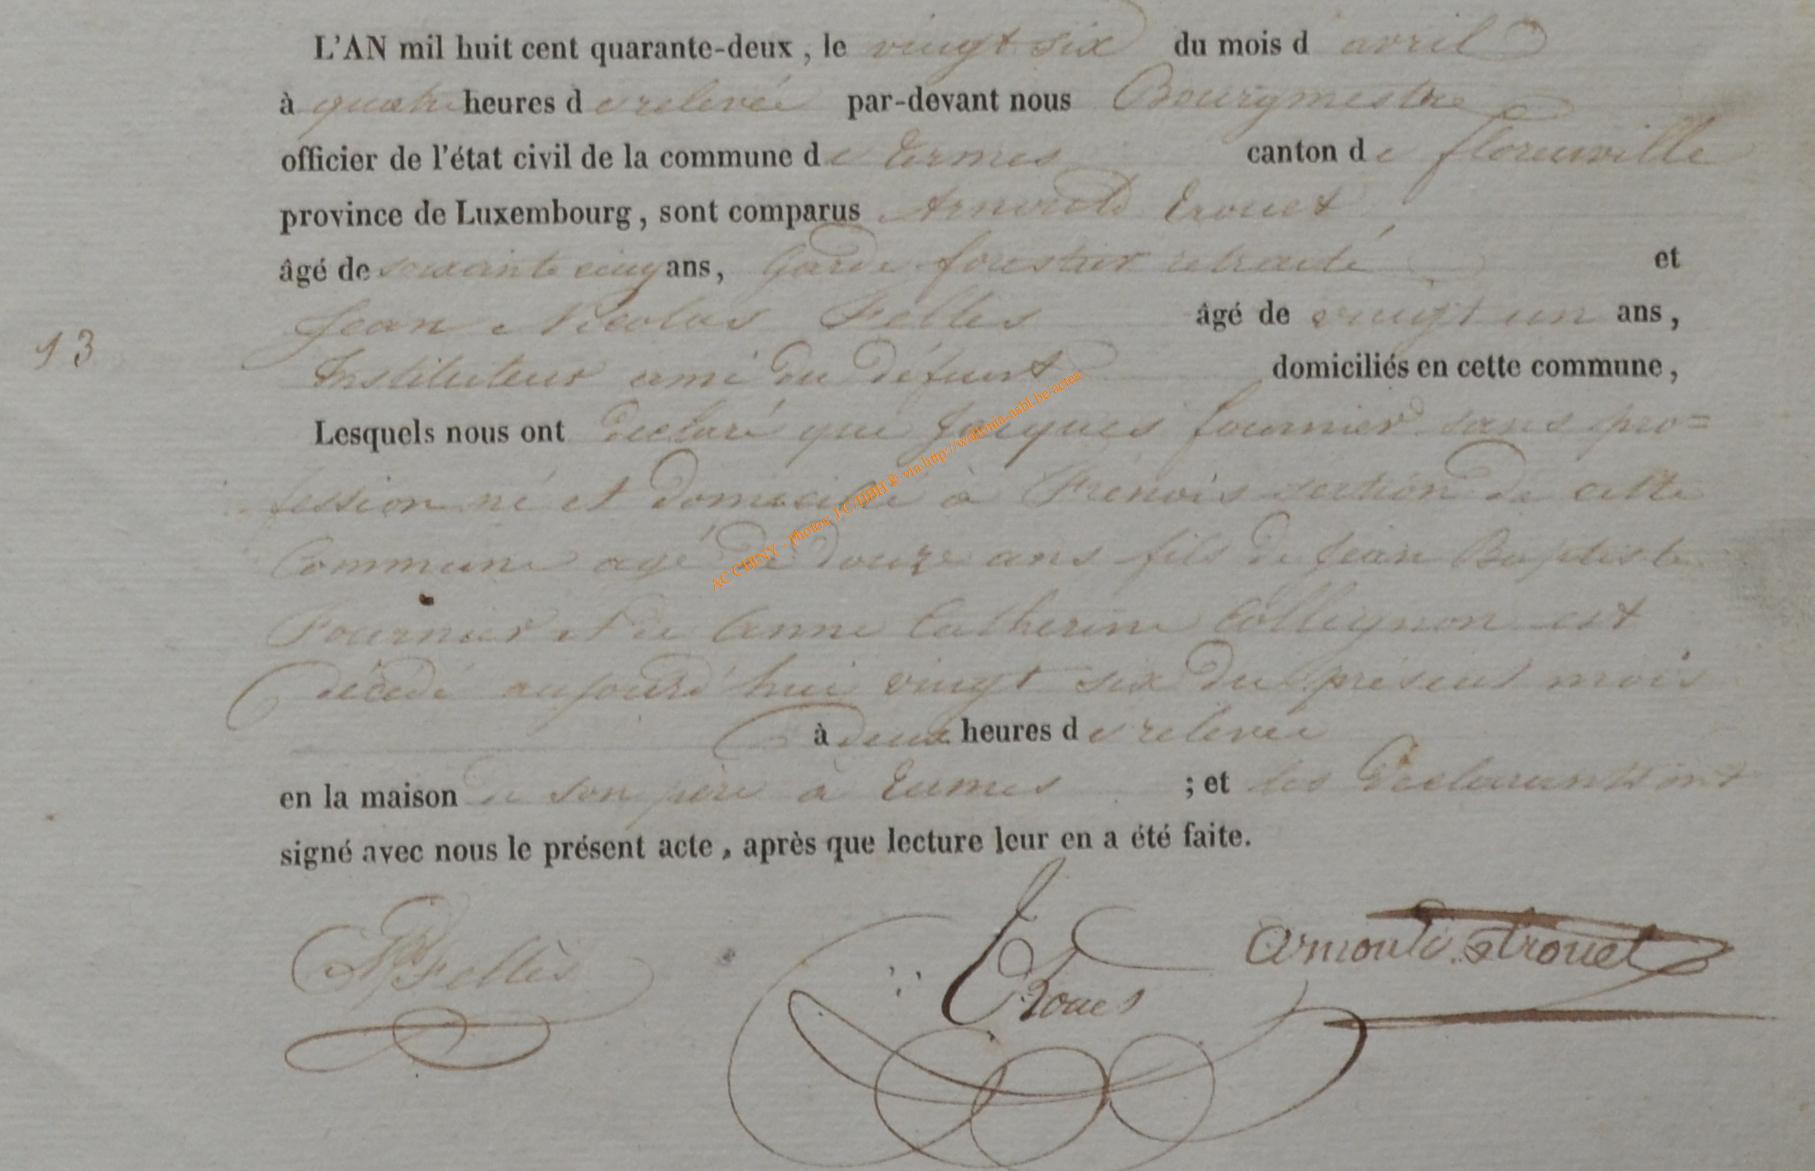 L'AN mil huit cent quarante-deux, le vingt six du mois d avril
à quatre heures d e relevée par-devant nous Bourgmestre
officier de l'état civil de la commune de Termes canton de florenville
province de Luxembourg, sont comparus Arnould Trouet
âgé de soixante cinq ans, Garde forestier retraité et
Jean Nicolas Felles âgé de vingt un ans,
13
Instituteur ami du défunt domiciliés en cette commune,
Lesquels nous ont declaré que Jacques fournier sans pro=
fession né et domicilié à Frenois section de cette
Commune agé de douze ans fils de Jean Baptiste
Fournier et de Anne Catherine Collignon est
décédé aujourd'hui vingt six du présent mois
à deux heures d e relevée
en la maison de son père à Termes ; et les déclarants ont
signé avec nous le présent acte, après que lecture leur en a été faite.
Fellès
arnould trouet
AC CHINY - photos J-C DDH & via http://wallonia-asbl.be/actes